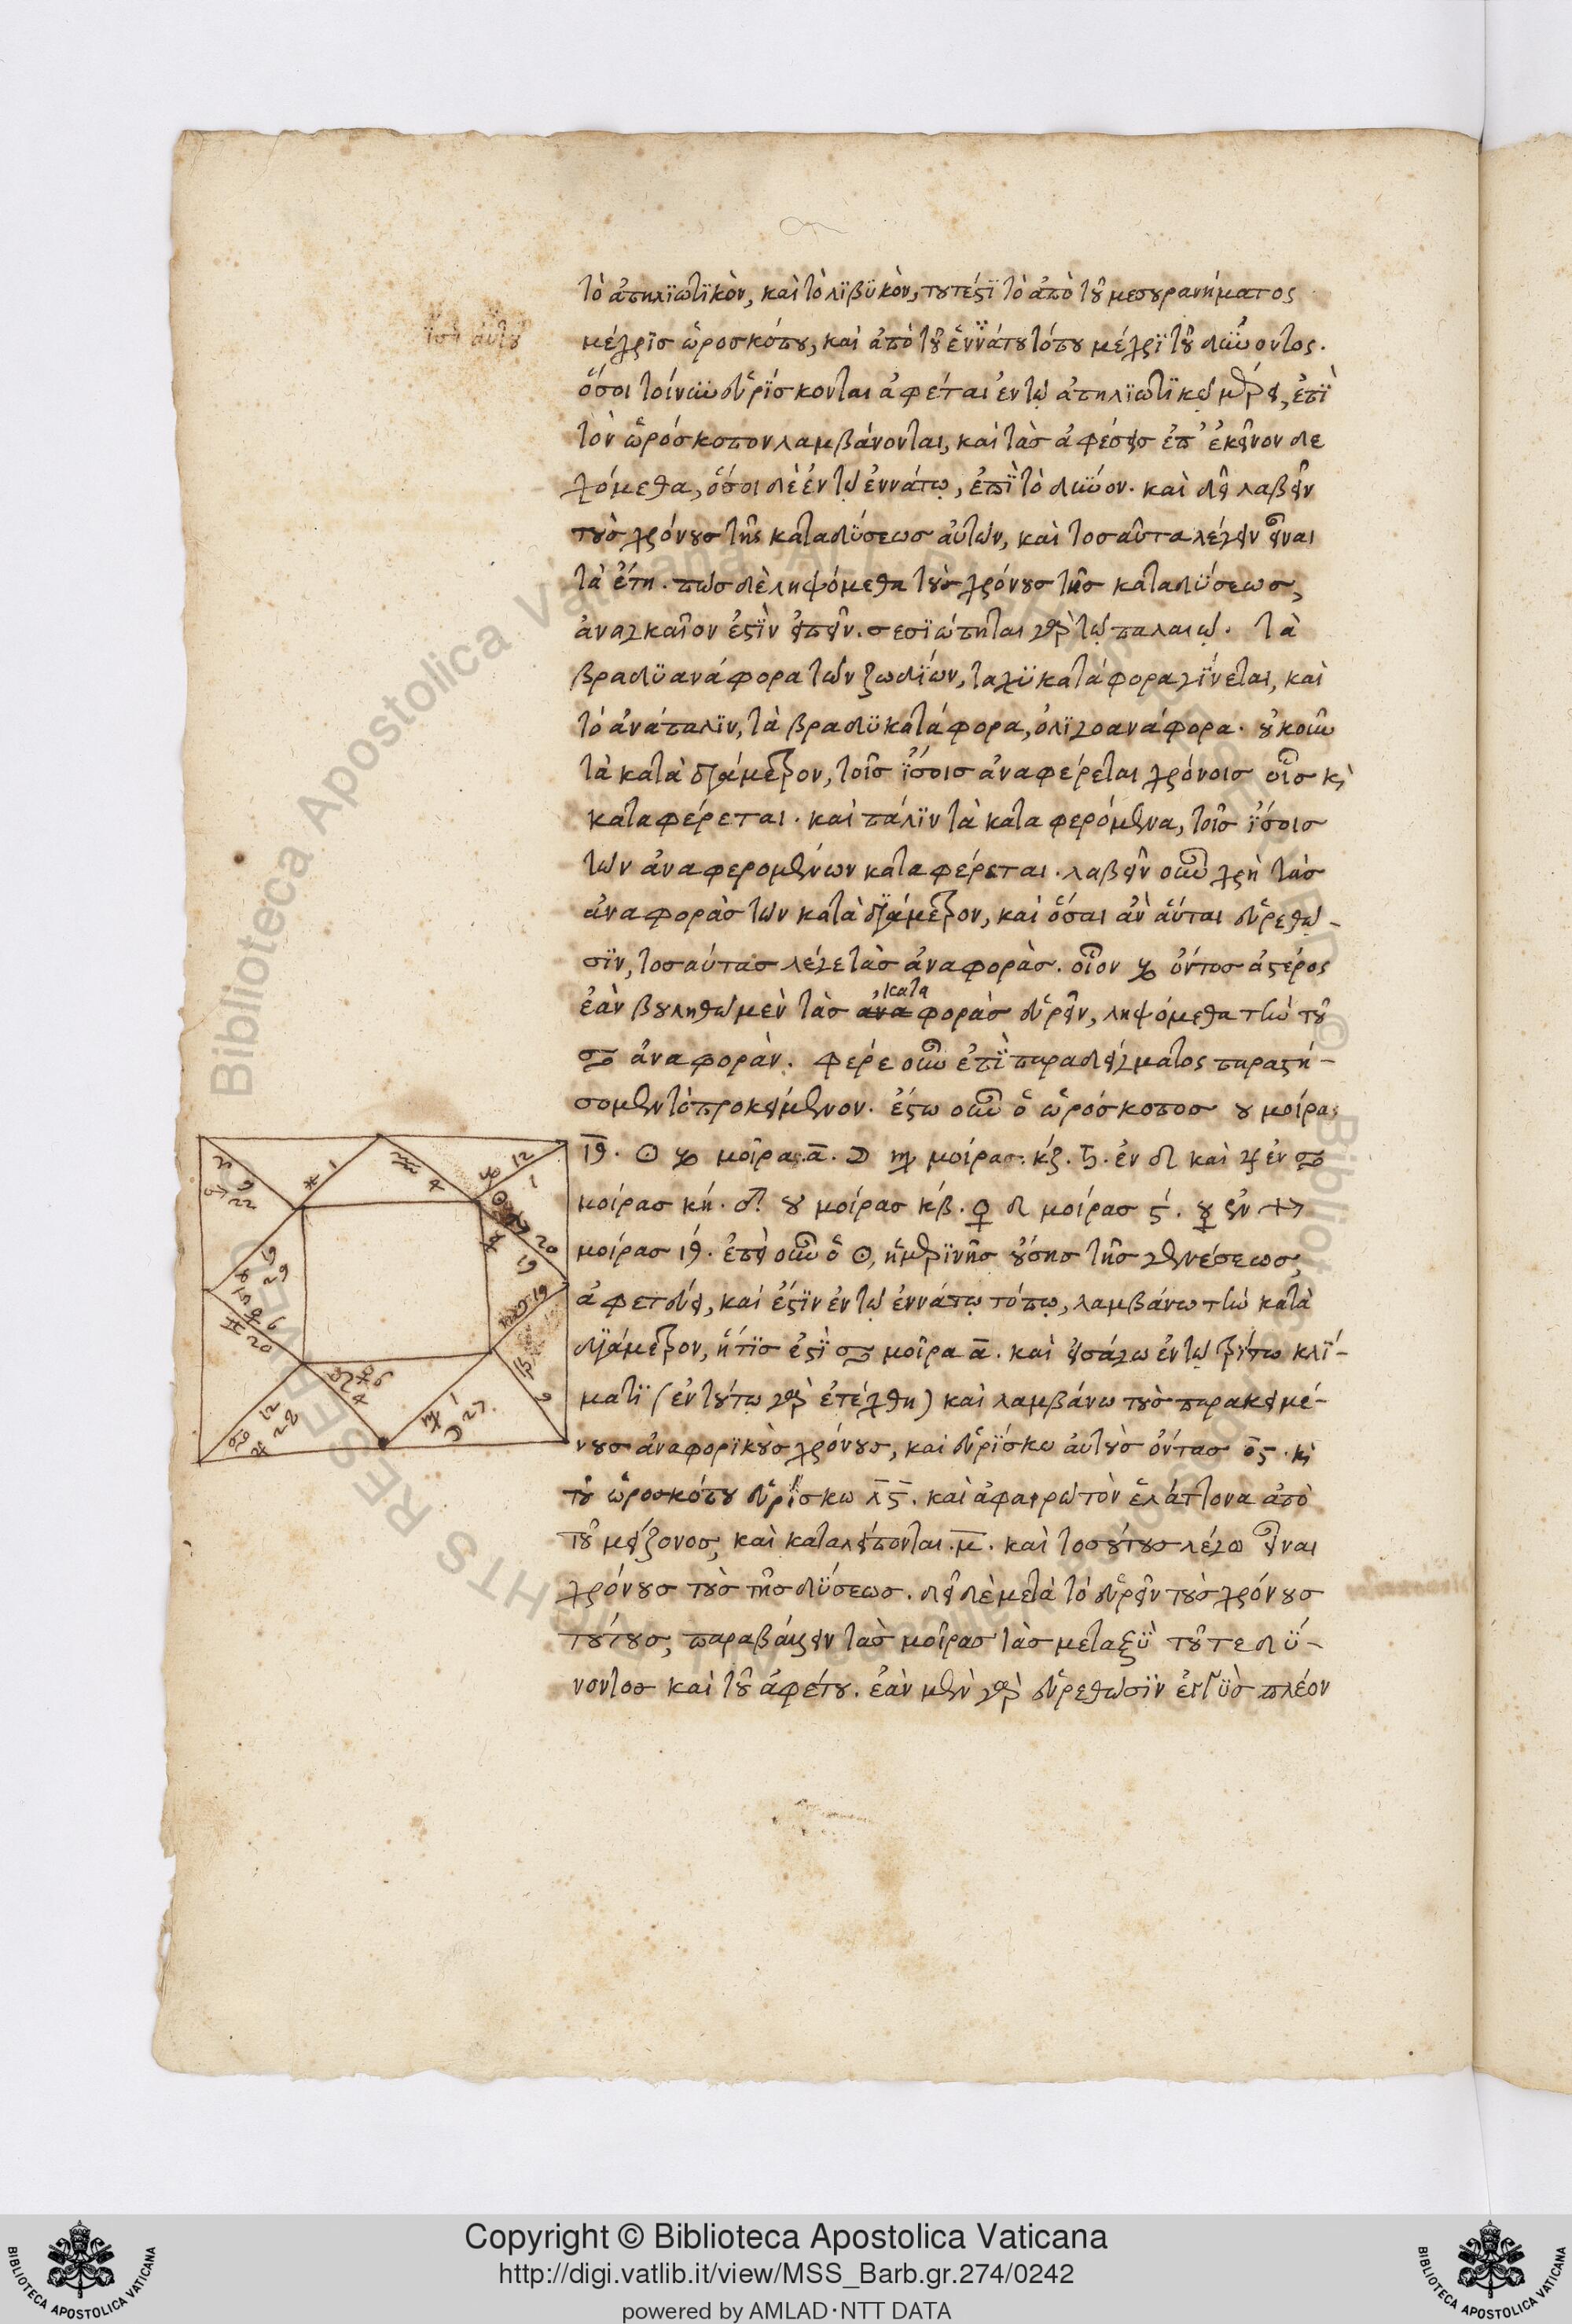 τὸ ἀπηλϊωτϊκὸν, καὶ τὸ λϊβϋκὸν, τουτέστϊ τὸ ἀπὸ τοῦ μεσουρανήματος
μέχρϊσ ὡροσκόπου, καὶ ἀπὸ τοῦ ἐννάτου τόπου μέχρϊ τοῦ δύνοντος.
ὅσοι τοίνυν εὑρϊσκονται ἀφέται ἐν τῷ ἀπηλϊωτϊκῷ μέρει, ἐπϊ
τὸν ὡρόσκοπον λαμβάνονται, καὶ τὰσ ἀφέσεισ ἐπ' ἐκεῖνον δε
χόμεθα, ὅσοι δὲ ἐν τῷ ἐννάτῳ, ἐπϊ τὸ δῦνον. καὶ δεῖ λαβεῖν
τοὺσ χρόνουσ τῆς καταδύσεωσ αὐτῶν, καὶ τοσαῦτα λέγειν εἶναι
τὰ ἔτη. πῶσ δὲ ληψόμεθα τοὺσ χρόνουσ τῆσ καταδϋσεωσ,
ἀναγκαῖον ἐστϊν εἰπεῖν. σεσϊώπηται γὰρ τῷ παλαιῷ. τὰ
βραδϋανάφορα τῶν ζωδϊων, ταχϋκατάφορα γϊνεται, καὶ
τὸ ἀνάπαλϊν, τὰ βραδϋκατάφορα, ὀλϊγοανάφορα. οὐκοῦν
τὰ κατὰ διάμετρον, τοῖσ ἴσοισ ἀναφέρεται χρόνοισ οἷσ κ̀
καταφέρεται. καὶ πάλϊν τὰ καταφερόμενα, τοῖσ ἴσοισ
τῶν ἀναφερομένων καταφέρεται. λαβεῖν οὖν χρὴ τὰσ
ἀναφορὰσ τῶν κατὰ διάμετρον, καὶ ὅσαι ἀν αὗται εὑρεθῶ-
σϊν, τοσαύτασ λέγε τὰσ ἀναφορὰσ. οἷον ♑ ὄντοσ ἀστέρος
κατα
ἐὰν βουληθῶμεν τὰσ ἀναφορὰσ εὑρεῖν, ληψόμεθα τὴν τοῦ
♋ ἀναφορὰν. φέρε οὖν ἐπϊ παραδείγματος παραστή-
σομεν τὸ προκείμενον. ἔστω οὖν ὁ ὡρόσκοποσ ♉ μοίρας
ιθ. ☉ ♑ μοῖρας. α. ☽ ♍ μοίρασ. κζ. ♄. ἐν ♌ καὶ ♃ ἐν ♋
μοίρασ κή. ♂ ♉ μοίρασ κβ. ♀ ♌ μοίρασ ς. ☿ ἐν ♐
μοίρασ ιθ. ἐπεὶ οὖν ὁ ☉, ἡμερϊνῆσ οὔσησ τῆσ γενέσεωσ,
ἀφετεύει, καὶ ἔστϊν ἐν τῷ ἐννάτῳ τόπῳ, λαμβάνω τὴν κατὰ
δϊάμετρον, ἥτϊσ ἐστϊ ♋ μοῖρα α. καὶ εἰσάγω ἐν τῷ τρίτῳ κλϊ-
ματϊ (ἐν τούτῳ γὰρ ἐτέχθη) καὶ λαμβάνω τοὺσ παρακειμέ-
νουσ ἀναφορϊκοὺσ χρόνουσ, καὶ εὑρϊσκω αὐτοὺσ ὄντασ ος. κ̀
τοῦ ὡροσκόπου εὑρϊσκω λς. καὶ ἀφαιρῶ τὸν ἐλάττονα ἀπὸ
τοῦ μείζονοσ, καὶ καταλείπονται. μ. καὶ τοσούτουσ λέγω εἶναι
χρόνουσ τοὺσ τῆσ δϋσεωσ. δεῖ δὲ μετὰ τὸ εὑρεῖν τοὺσ χρόνουσ
τούτουσ, παραβάλλειν τὰσ μοῖρασ τὰσ μεταξϋ τοῦ τε δϋ-
νοντοσ καὶ τοῦ ἀφέτου. ἐὰν μὲν γὰρ εὑρεθῶσϊν ἐγγϋσ πλέον
Copyright © Biblioteca Apostolica Vaticana
http://digi.vatlib.it/view/MSS_Barb.gr.274/0242
powered by AMLAD·NTT DATA
BIBLIOTECA APOSTOLICA VATICANA
BIBLIOTECA APOSTOLICA VATICANA